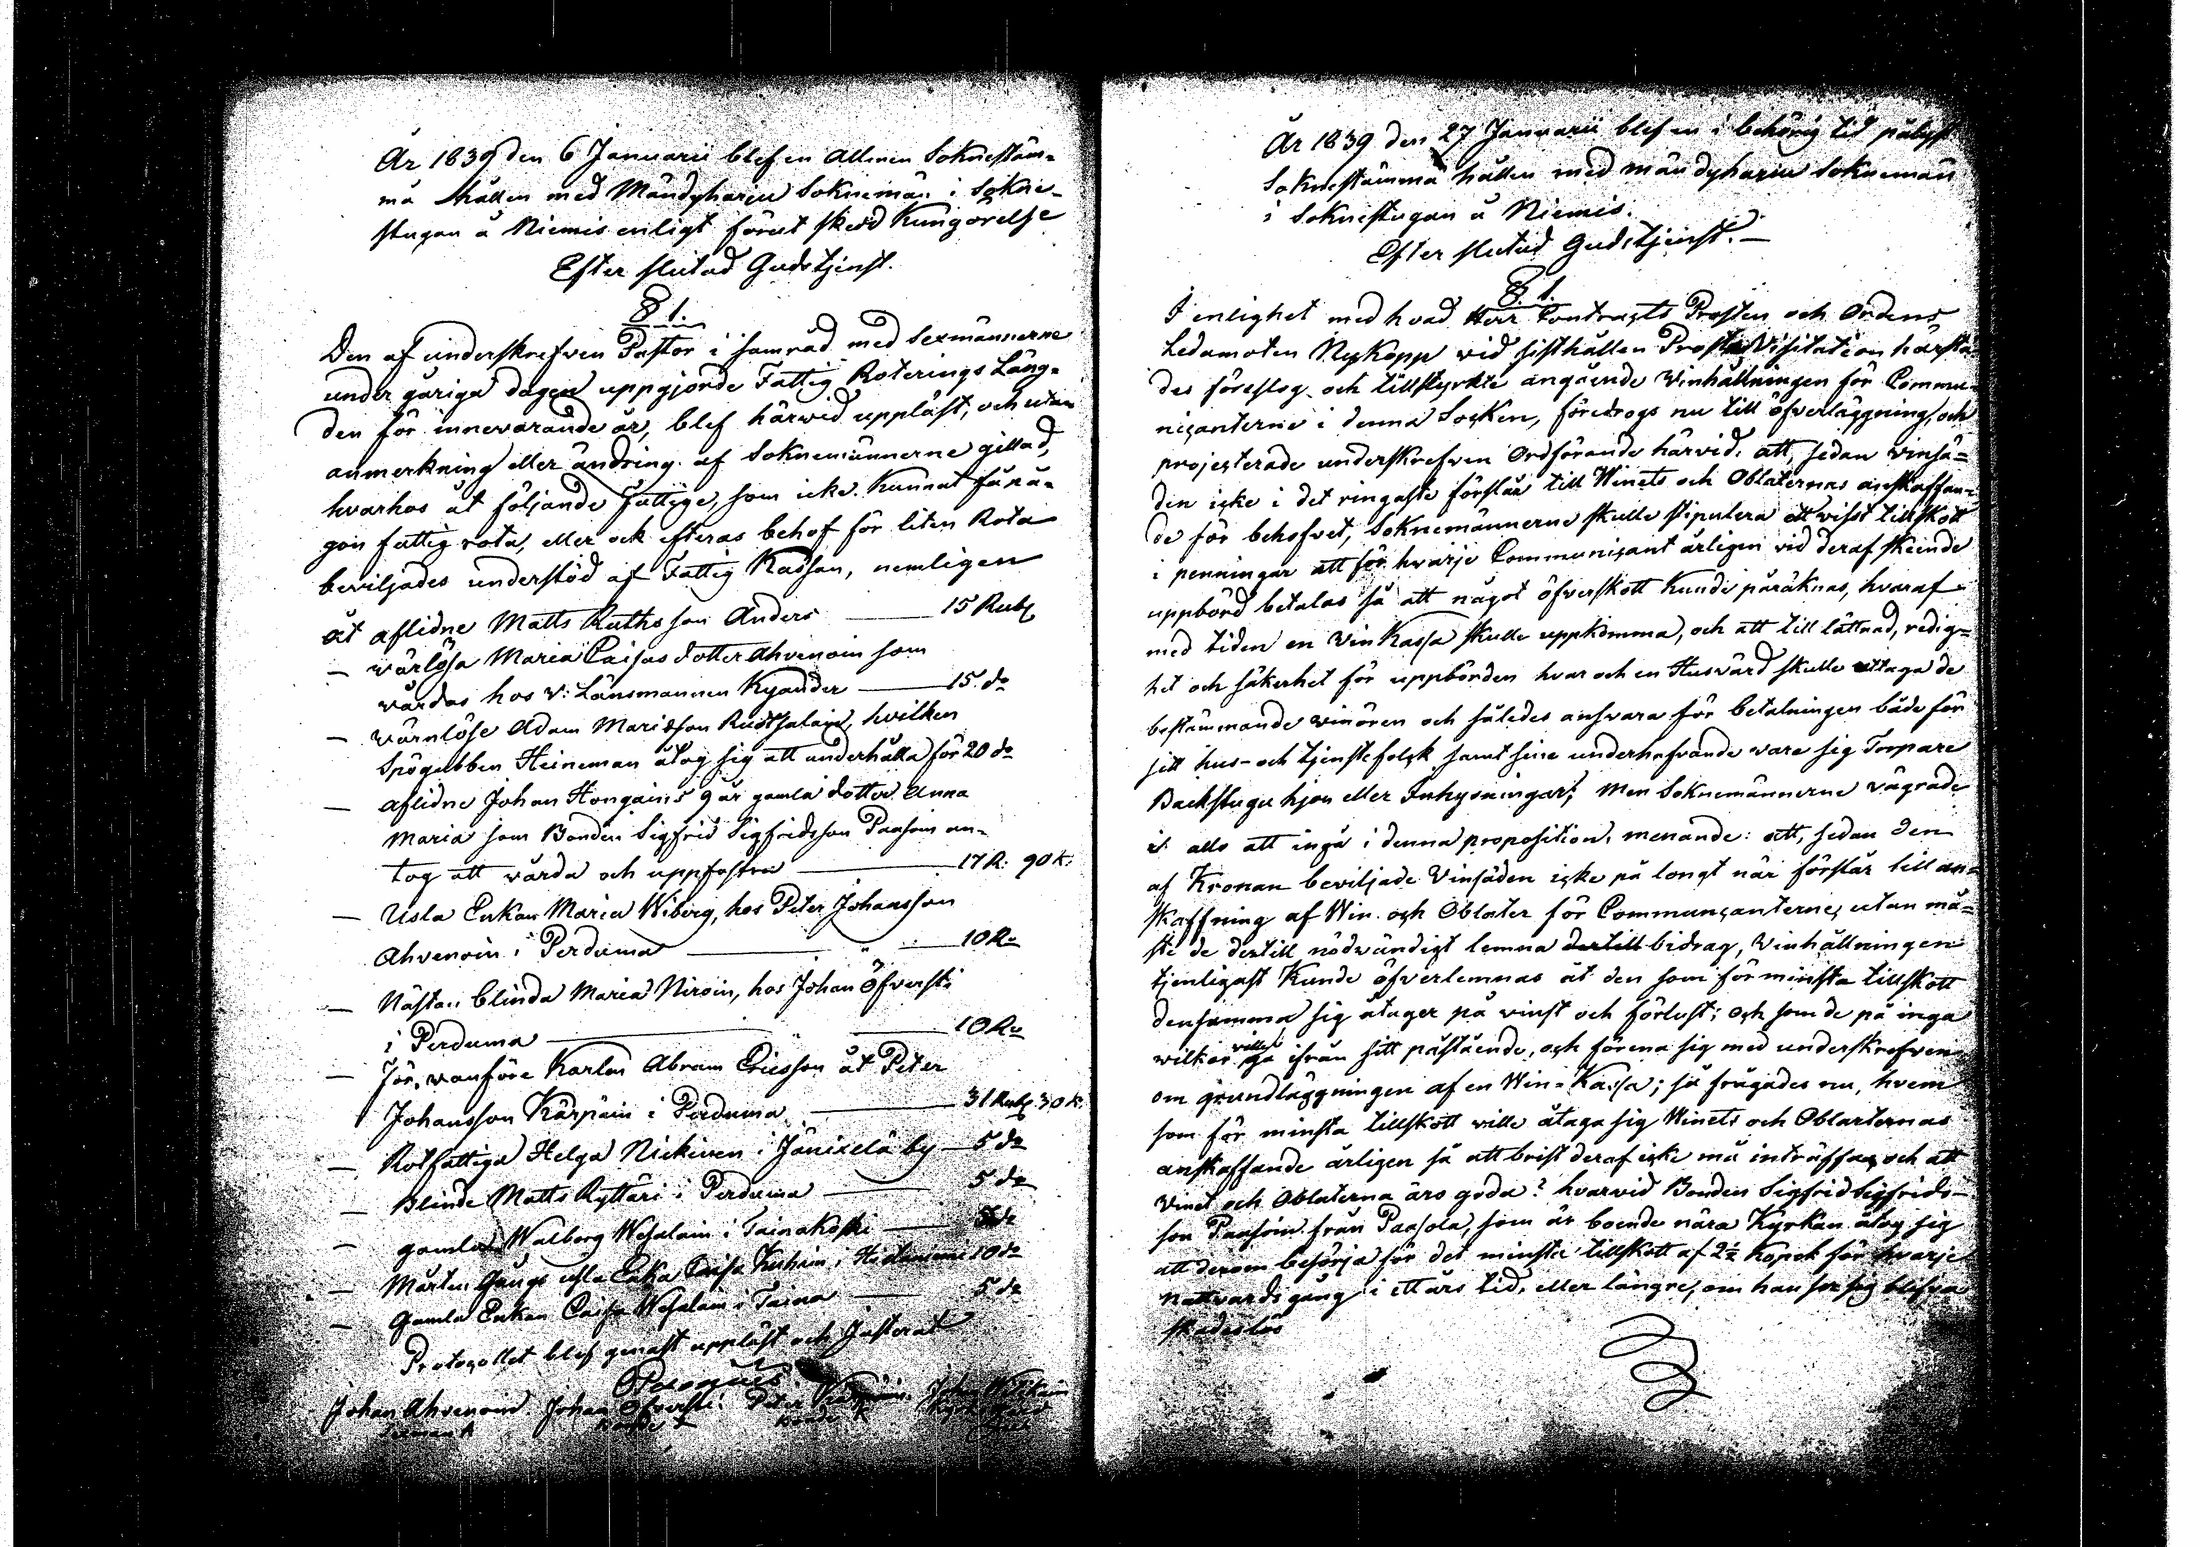 År 1839 den 6 Januarii blef en Allmen Soknestäm-
ma hållen med Mÿndyharju Soknemän i Sokne-
stugan å Niemis enligt förut skedd Kungörelse
Efter slutad Gudstjenst.
§ 1.
Den af underskrefven Pastor i samråd med Sexmännerne
under gåriga dagen uppgjorde Fattig Roterings Läng-
den för innevarande år, blef härwid uppläst, och utan
anmerkning eller ändring af Soknemännerne gillad,
hvarhos åt följande Fattige, som icke kunnat få nå-
gon fattig rota, eller ock efteras behof för liten Rota
beviljades understöd af Fattig Kassan, nemligen
åt aflidne Matts Ruths son Anders 15 Rub
— wärlösa Maria Caisas dotter Ahvenain som
vårdas hos v: Länsmannen Kyander 15. do
— wärnlöse Adam Mariæson, hvilken
Spögubben Heineman åtog sig att underhålla för 20 do
— aflidne Johan Hongains 9 år gamla dotter Anna
Maria som Bonden Sigfrid Sigfridsson Paasoin an-
tog att vårda och uppfostra 17 R. 90 k.
— Usla Enkan Maria Wiberg, hos Peter Johansson
Ahvenoin i Perduma 10 Ru
— Nästan blinda Maria Niroin, hos Johan Öfversti
i Perduma 10 Ru
— För vanföre Karlen Abram Ericsson åt Peter
Johansson Kärpäin i Perduma 31 Rub. 30 k.
— Rotfattiga Helga Nickinen i Jänixelä by 5 do
— Blinde Matts Ryttäri i Perduma 5 do
— gamla Walborg Wesalain i Tainakoski 5 do
— Mårten Gångs usla Enka Caisa i 10 do
— Gamla Enkan Caisa Wesalain i Taina 5 do
Protocollet blef genast uppläst och Justerat
Johan Ahvenoin Johan Öfversti Peter
År 1839 den 27 Januarii blef en i behörig tid pålyst
Soknestämma hållen med Mändyharju Soknemän
i Soknestugan å Niemis.
Efter slutad Gudstjenst.—
§. 1.
I enlighet med hvad Herr Contracts Prosten och Ordens
Ledamoten Nykopp wid sisthållen Prosts Visitation härstä-
des föreslog och tillstyrkte angående Vinhållningen för Commu-
nicanterne i denna Socken, föredrogs nu till öfverläggning, och
projecterade underskrefven Ordförande härvid, att, sedan vinsä-
den icke i det ringaste förslår till Winets och Oblaternas anskaffan-
de för behofvet, Soknemännerne skulle stipulera ett visst tillskott
i penningar att för hwarje Communicant årligen vid deraf skeende
uppbörd betalas så att något öfverskott kunde påräknas, hvaraf
med tiden en Vin Kassa skulle uppkomma, och att till lättnad, redig-
het och säkerhet för uppbörden hvar och en Husvärd skulle uttaga de
bestämmande vinören och således ansvara för betalningen både för
sitt hus- och tjenstefolck samt sine underhafvande vare sig Torpare
Backstugu hjon eller Inhysningar; Men Soknemännerne vägrade
alls att ingå i denna proposition, menande: att, sedan den
af Kronan beviljade Vinsäden icke på longt när förslår till an-
skaffning af Win och Oblater för Communicanterne, utan må-
ste de dertill nödvändigt lemna dertill bidrag, Vinhållningen
tjenligast kunde öfverlemnas åt den som för minsta tillskott
densamma sig åtager på vinst och förlust; och som de på inga
wilkor ville gå ifrån sitt påstående, och förena sig med underskrefven
om grundläggningen af en Win-Kassa; så frågades nu, hvem
som för minsta tillskott wille åtaga sig Winets och Oblaternas
anskaffande årligen så att brist deraf icke må inträffa, och att
Vinet och Oblaterna äro goda? hvarvid Bonden Sigfrid Sigfrids-
son Paasoin från Paasola, som är boende nära Kyrkan åtog sig
att derom besörja för det minsta tillskott af 2½ Kopek för hvarje
Nattvardsgång i ett års tid, eller längre, om han ser sig blifva
skadeslös